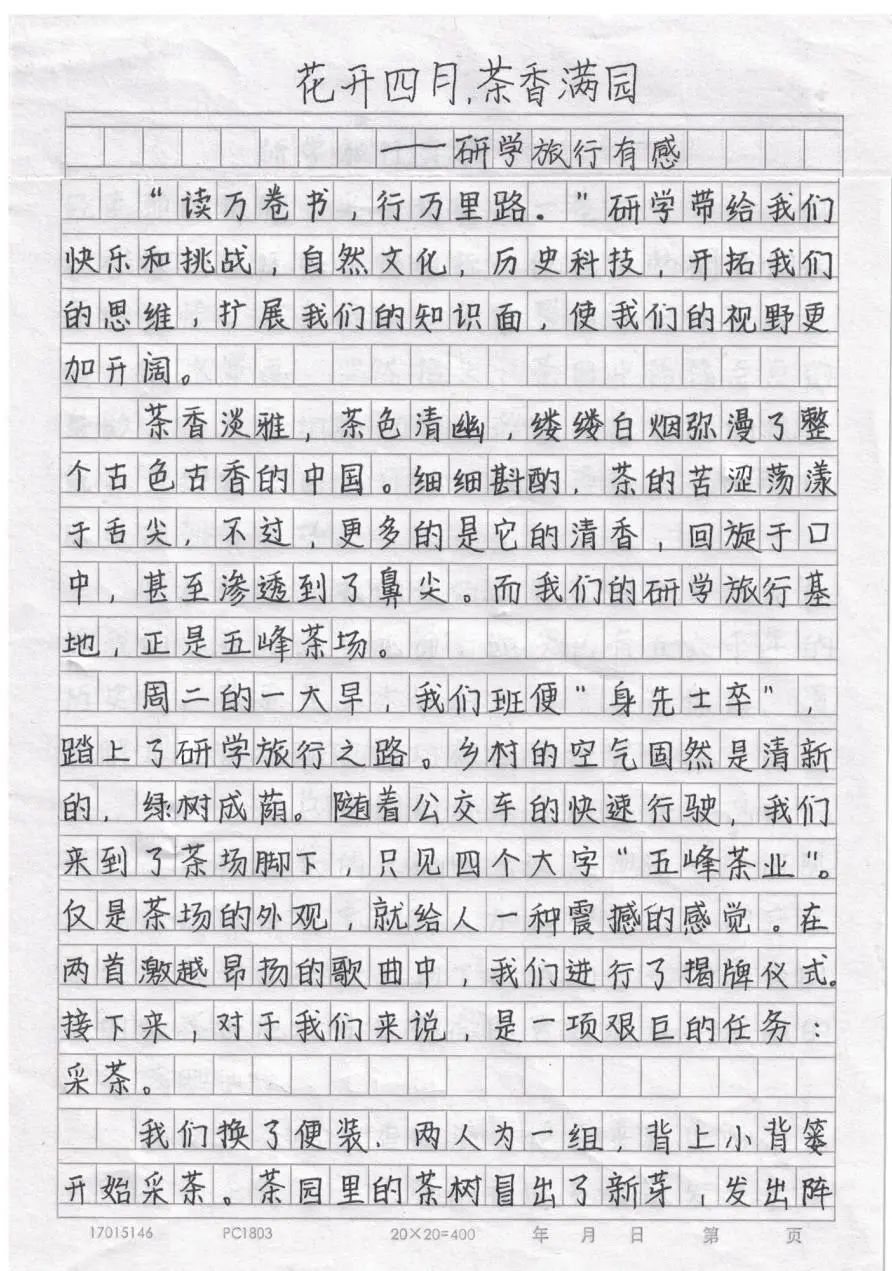 花开四月,茶香满园
——研学旅行有感
“读万卷书，行万里路．”研学带给我们
快乐和挑战，自然文化，历史科技，开拓我们
的思维，扩展我们的知识面，使我们的视野更
加开阔。
茶香淡雅，茶色清幽，缕缕白烟弥漫了整
个古色古香的中国。细细斟酌，茶的苦涩荡漾
于舌尖，不过，更多的是它的清香，回旋于口
中，甚至渗透到了鼻尖。而我们的研学旅行基
地，正是五峰茶场。
周二的一大早，我们班便“身先士卒”，
踏上了研学旅行之路。乡村的空气固然是清新
的，绿树成荫。随着公交车的快速行驶，我们
来到了茶场脚下，只见四个大字“五峰茶业”。
仅是茶场的外观，就给人一种震撼的感觉。在
两首激越昂扬的歌曲中，我们进行了揭牌仪式。
接下来，对于我们来说，是一项艰巨的任务：
采茶。
我们换了便装．两人为一组，背上小背篓
开始采茶。茶园里的茶树冒出了新芽，发出阵
17015146 PC1803 20×20=400 年 月 日 第 页